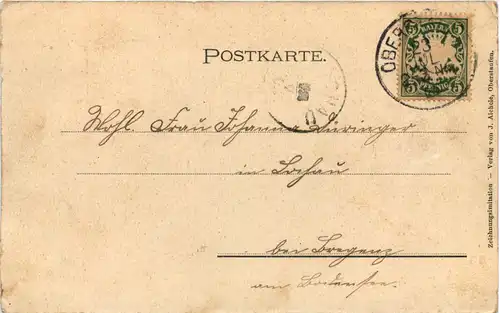 POSTKARTE.
BAYERN
5 5
PFENNIG
Wohl. Frau Johanna
in Lochau
bei Bregenz
am Bodensee.
Zeichnungsimitation – Verlag von J. Aichele, Oberstaufen.